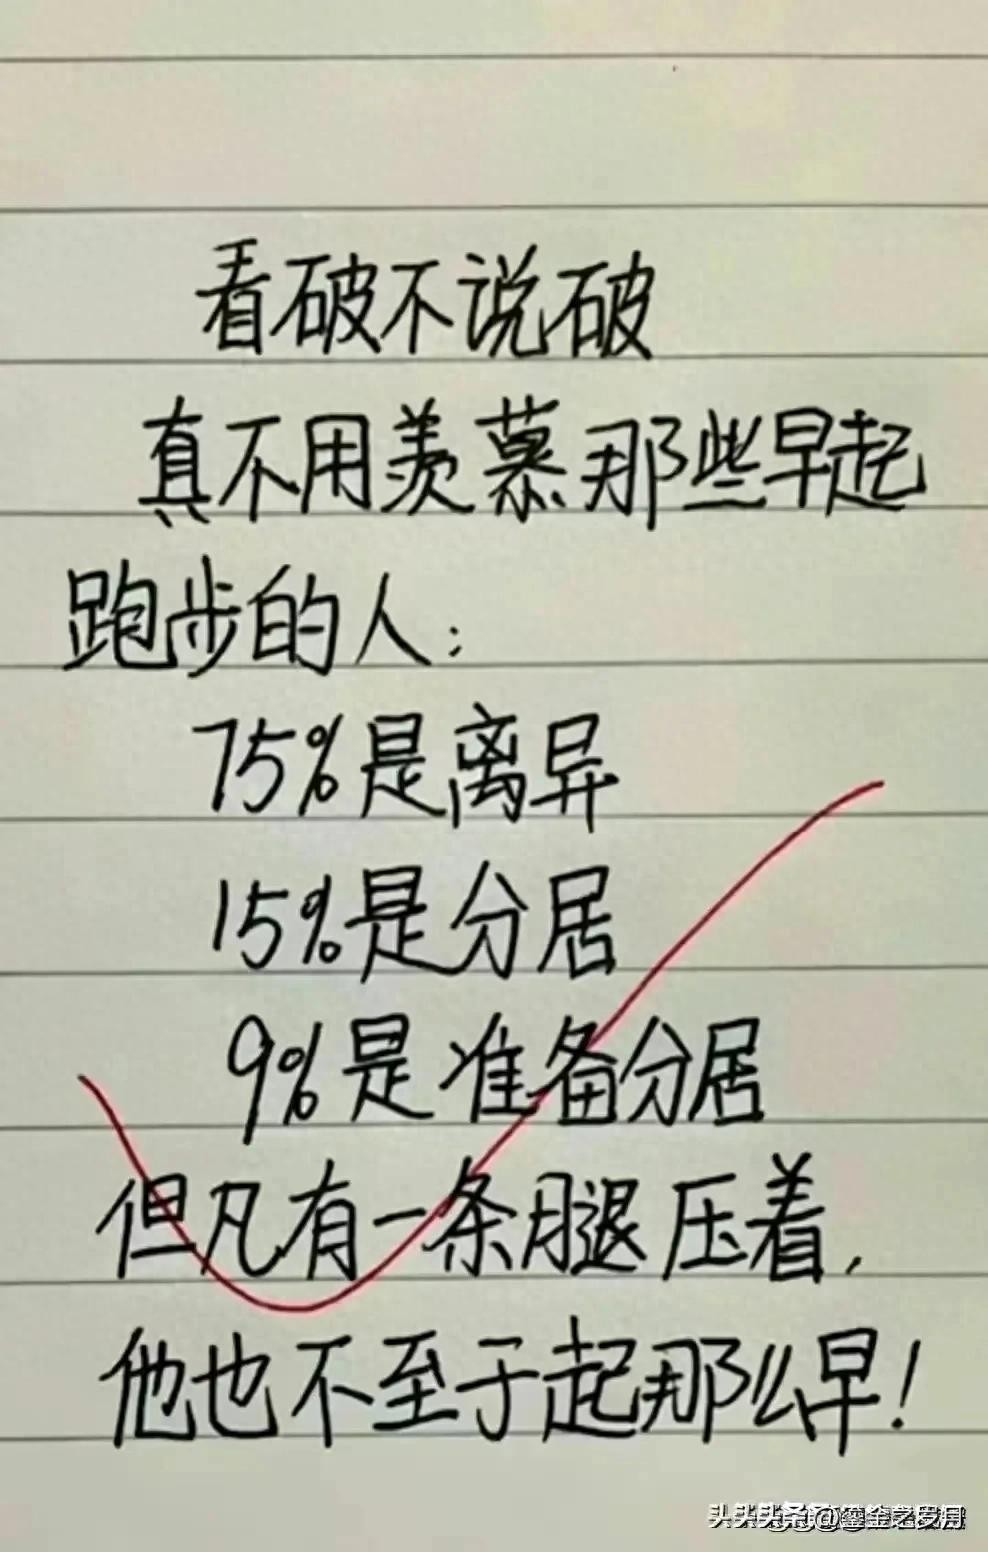 看破不说破
真不用羡慕那些早起
跑步的人:
75%是离异
15%是分居
9%是准备分居
但凡有一条腿压着,
他也不至于起那么早!